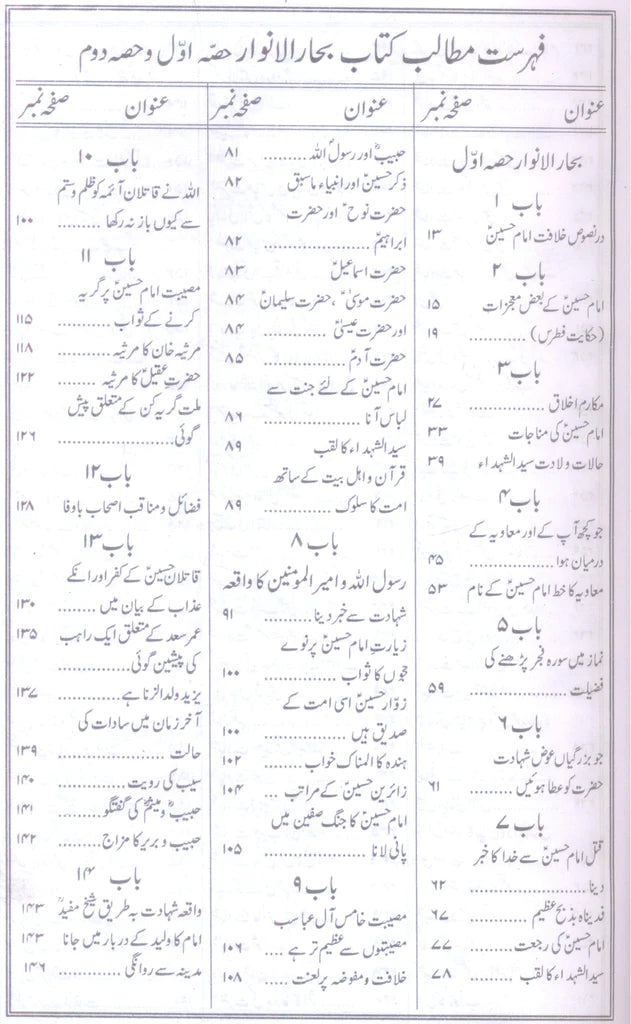 فہرست مطالب کتاب بحار الانوار حصہ اوّل و حصہ دوم
عنوان صفحہ نمبر
بحار الانوار حصہ اوّل
باب ۱
در نصوص خلافت امام حسینؑ ۱۳
باب ۲
امام حسینؑ کے بعض معجزات ۱۵
(حکایت فطرس) ............ ۱۹
باب ۳
مکارم اخلاق ............ ۲۷
امام حسینؑ کی مناجات ۳۳
حالات ولادت سید الشہداء ۳۹
باب ۴
جو کچھ آپ کے اور معاویہ کے
درمیان ہوا ............ ۴۵
معاویہ کا خط امام حسینؑ کے نام ۵۳
باب ۵
نماز میں سورہ فجر پڑھنے کی
فضیلت ............ ۵۹
باب ۶
جو بزرگیاں عوض شہادت
حضرت کو عطا ہوئیں ......... ۶۱
باب ۷
قتل امام حسینؑ سے خدا کا خبر
دینا ............ ۶۲
فدیناہ بذبح عظیم ......... ۶۷
امام حسینؑ کی رجعت ......... ۷۷
سید الشہداء کا لقب ......... ۷۸
عنوان صفحہ نمبر
حبیبؓ اور رسولؐ اللہ ......... ۸۱
ذکر حسینؑ اور انبیاء ماسبق ۸۲
حضرت نوحؑ اور حضرت
ابراہیمؑ ............ ۸۲
حضرت اسماعیلؑ ۸۳
حضرت موسیٰؑ ، حضرت سلیمانؑ ۸۴
اور حضرت عیسیٰؑ ۸۴
حضرت آدمؑ ۸۵
امام حسینؑ کے لئے جنت سے
لباس آنا ............ ۸۶
سید الشہداء کا لقب ۸۹
قرآن و اہل بیت کے ساتھ
امت کا سلوک ............ ۸۹
باب ۸
رسول اللہ و امیر المومنین کا واقعہ
شہادت سے خبر دینا......... ۹۱
زیارتِ امام حسینؑ پر نوے
حجوں کا ثواب ............ ۱۰۰
زوّار حسینؑ اسی امت کے
صدیق ہیں ............ ۱۰۰
ہندہ کا المناک خواب ...... ۱۰۲
زائرین حسینؑ کے مراتب ... ۱۰۴
امام حسینؑ کا جنگ صفین میں
پانی لانا ............ ۱۰۵
باب ۹
مصیبت خامس آل عبا سب
مصیبتوں سے عظیم تر ہے .... ۱۰۶
خلافت و مفوضہ پر لعنت ۱۰۸
عنوان صفحہ نمبر
باب ۱۰
اللہ نے قاتلان آئمہ کو ظلم و ستم
سے کیوں باز نہ رکھا ......... ۱۰۰
باب ۱۱
مصیبت امام حسینؑ پر گریہ
کرنے کے ثواب ......... ۱۱۵
مرثیہ خان کا مرثیہ ......... ۱۱۸
حضرت عقیلؑ کا مرثیہ ...... ۱۲۲
ملت گریہ کن کے متعلق پیش
گوئی ............ ۱۲۶
باب ۱۲
فضائل و مناقب اصحاب باوفا ۱۲۸
باب ۱۳
قاتلان حسینؑ کے کفر اور انکے
عذاب کے بیان میں ......... ۱۳۰
عمر سعد کے متعلق ایک راہب ۱۳۵
کی پیشین گوئی............
یزید ولد الزنا ہے ......... ۱۳۷
آخر زمان میں سادات کی
حالت ............ ۱۳۹
سیب کی رویت ............ ۱۴۰
حبیبؓ و میثمؓ کی گفتگو......... ۱۴۱
حبیب و بریر کا مزاح ......... ۱۴۲
باب ۱۴
واقعہ شہادت بہ طریق شیخ مفیدؒ ۱۴۳
امام کا ولید کے دربار میں جانا ۱۴۳
مدینہ سے روانگی ............ ۱۴۶